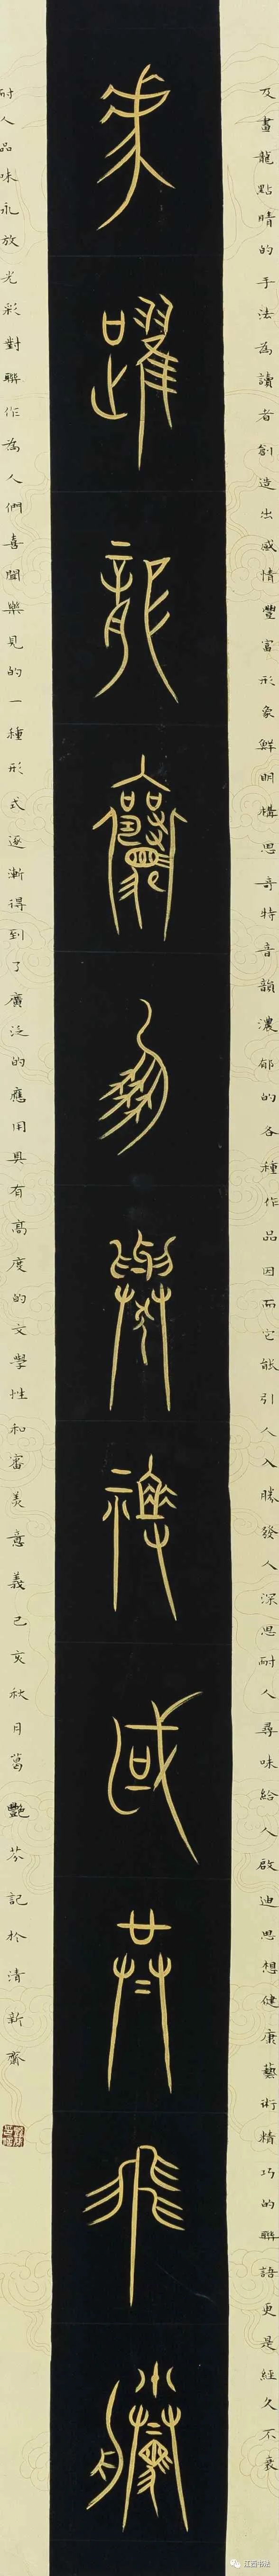 及畫龍點睛的手法為讀者創造出感情豐富形象鮮明構思奇特音韻濃郁的各種作品因而它能引人入勝發人深思耐人尋味給人啟迪思想健康藝術精巧的聯語更是經久不衰
躍龍域共飛
耐人品味永放光彩對聯作為人們喜聞樂見的一種形式逐漸得到了廣泛的應用具有高度的文學性和審美意義己亥秋月葛艷芬記於清新齋
江西书法